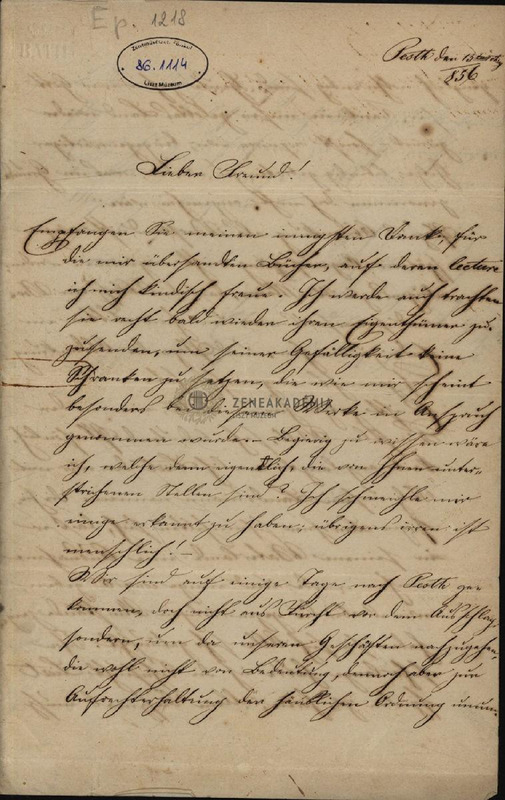 Ep. 1218
Zeneművészeti Főiskola
86.1114
Liszt Múzeum
Pesth den 13
856
Lieber Freund!
Empfangen Sie meinen innigsten Dank, für
die mir übersandten Bücher, auf deren lecture
ich mich kindisch freue. Ich werde auch trachten
sie recht bald wieder ihren Eigenthümer zu-
zusenden, um seiner Gefälligkeit keine
Schranken zu setzen, die wie mir scheint
besonders bei diesem Werke in Anspruch
genommen wurde. Begierig zu wissen wäre
ich, welche denn eigentlich die von Ihnen unter-
strichenen Stellen sind? Ich schmeichle mir
einige erkannt zu haben; übrigens irren ist
menschlich! –
Wir sind auf einige Tage nach Pesth ge-
kommen, doch nicht aus Furcht vor dem
sondern, um da unseren Geschäften nachzugehen,
die wohl nicht von Bedeutung, dennoch aber zur
Aufrechterhaltung der häuslichen Ordnung unum-
ZENEAKADÉMIA
LISZT MÚZEUM